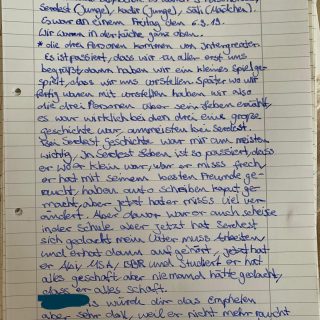 Serdest (Junge), kadir (Junge), Sati (Mädchen).
Es war an einem Freitag den 6.9.19.
Wir waren in der küche ganz oben.
* die drei Personen kommen von Intergreater.
Es ist passiert, dass wir zu aller erst uns
begrüßt haben wir ein kleines Spiel ge-
spielt, dass wir uns vorstellen. Später wo wir
fertig waren mit vorstellen haben wir also
die drei Personen über sein Leben erzählt,
es war wirklich bei den drei eine große
geschichte war am meisten bei Serdest.
Bei Serdest geschichte war mir am meisten
wichtig, In Serdest Leben ist so passiert, dass
er wo er klein war, war er muss frech,
er hat mit seinem besten Freunde ge-
raucht, haben auto scheiben kaput ge-
macht, aber jetzt hat er muss viel ver-
ändert. Aber davor war er auch scheise
in der Schule aber jetzt hat Serdest
sich gedacht mein Vater muss Arbeiten
und er hat dann aufgehört, jetzt hat
er Abi, MSA, BBR und Studiert er hat
alles geschaft aber niemand hätte gedacht,
dass er alles schaft.
würde dir das empfelen
aber sehr dol, weil er nicht mehr raucht